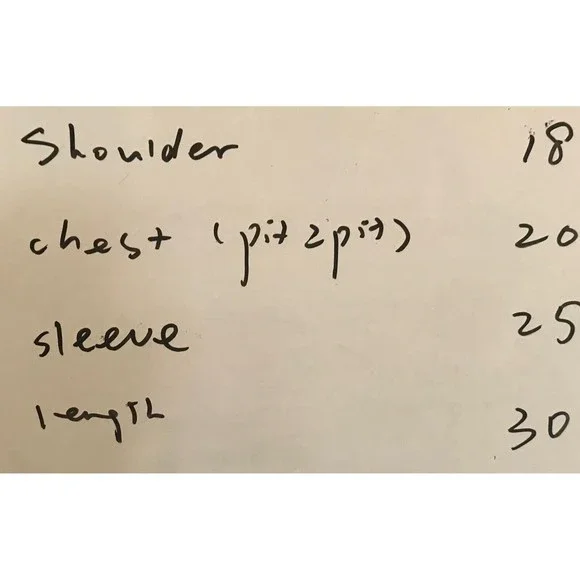 Shoulder 18
chest (pit2pit) 20
sleeve 25
length 30